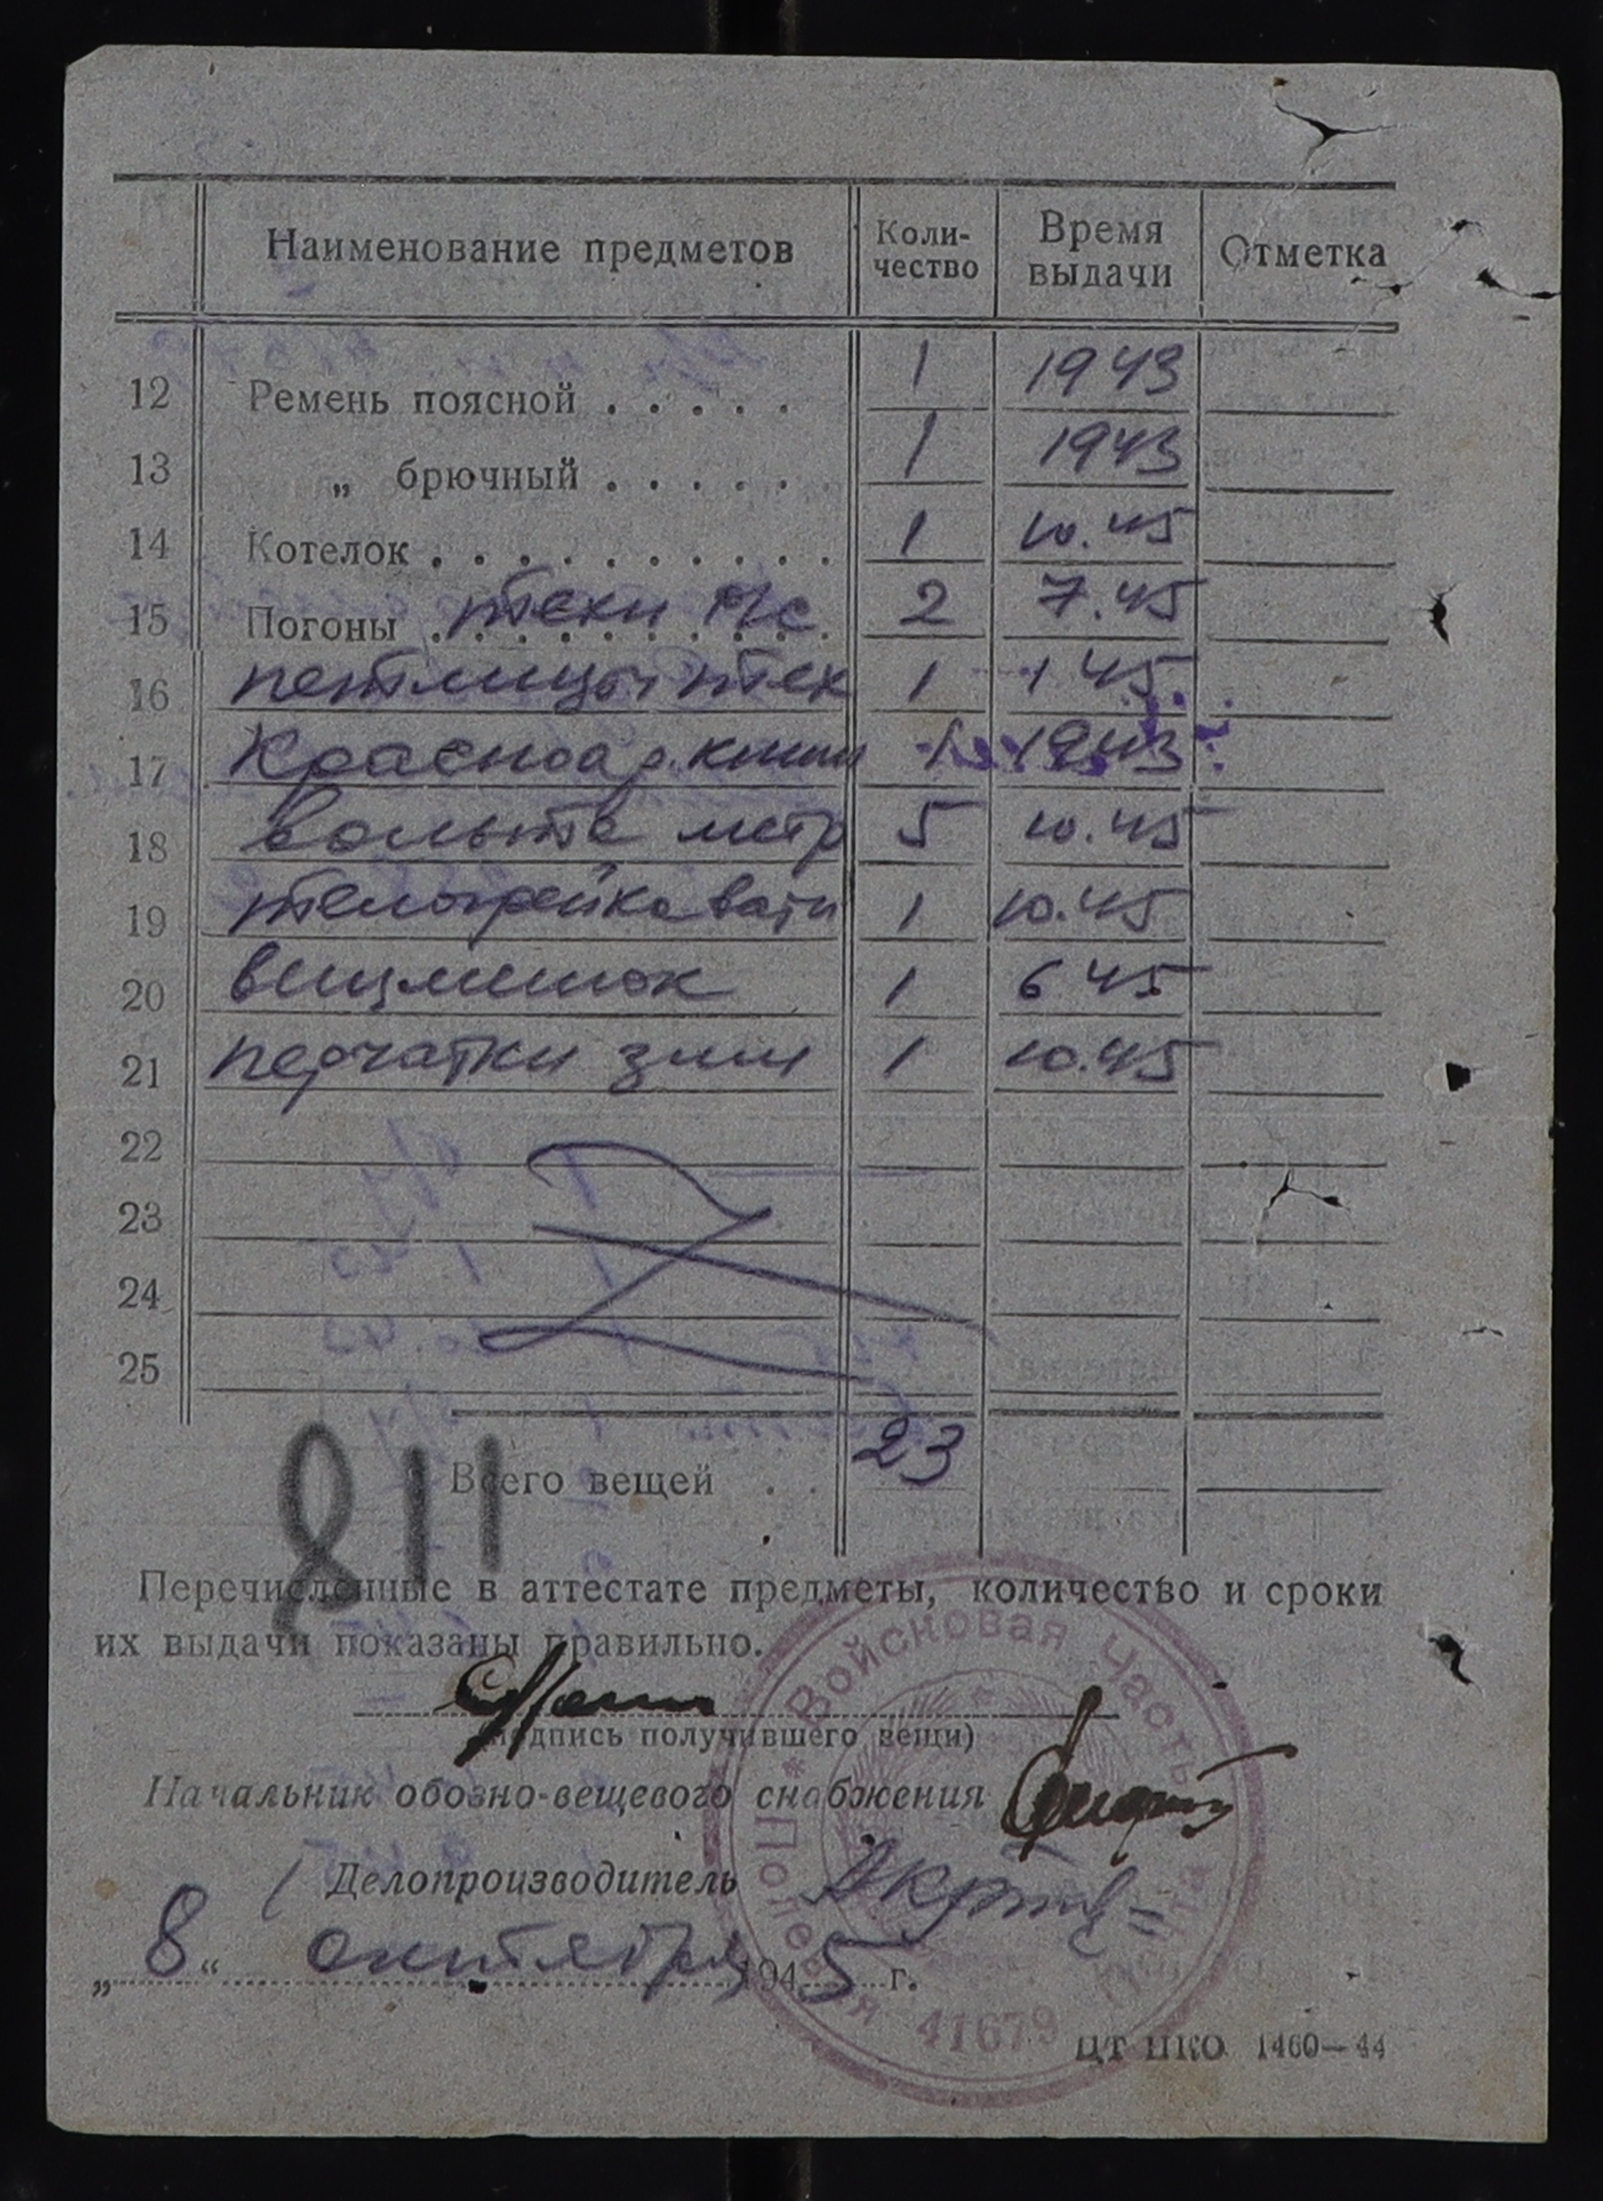 Наименование предметов Коли-чество Время выдачи Отметка
12 Ремень поясной . . . . . 1 1943
13 „ брючный . . . . . . 1 1943
14 Котелок . . . . . . . . . . 1 10.45
15 Погоны 2 7.45
16 петлицы птех 1 1 45
17 Красноар. книж 1 1943
18 метр 5 10.45
19 телогрейка ватн 1 10.45
20 вещмешок 1 6 45
21 перчатки зим 1 10.45
22
23
24
25
Всего вещей . . 23
811
Перечисленные в аттестате предметы, количество и сроки
их выдачи показаны правильно.
(подпись получившего вещи)
Начальник обозно-вещевого снабжения
Делопроизводитель
„ 8 “ октября 1945 г.
Войсковая Часть * Полевая Почта 41679 *
ЦТ НКО 1460—44